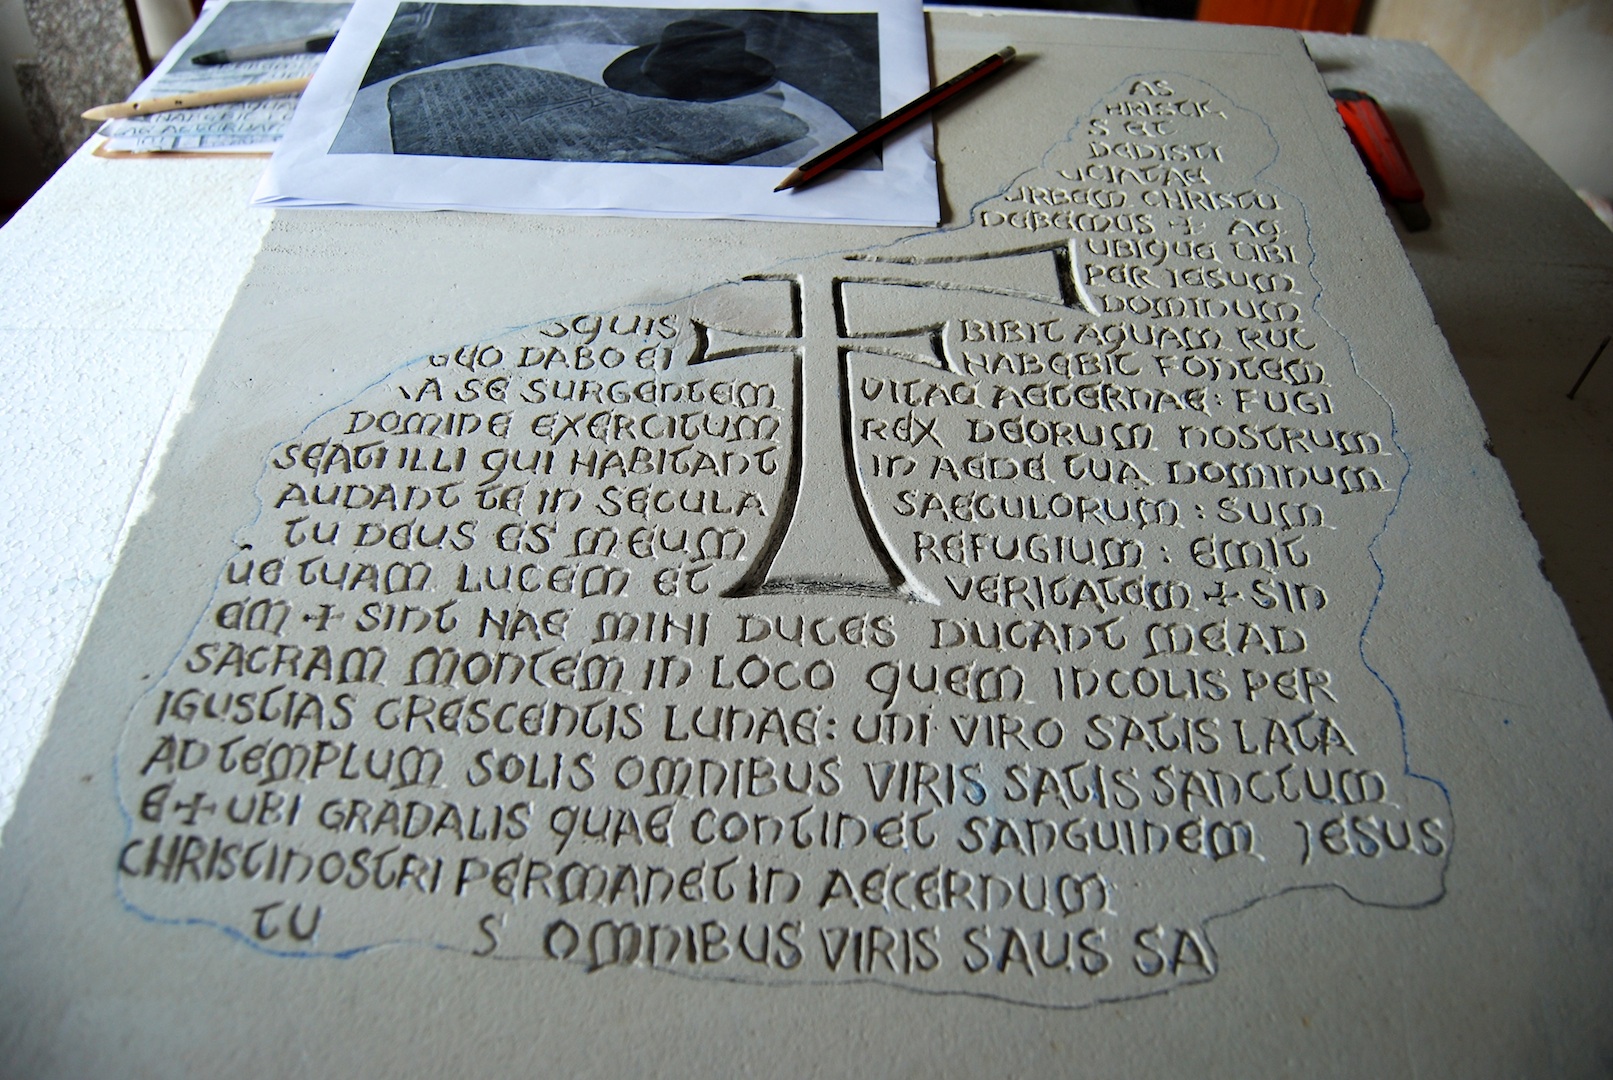 AS
HRISTIC
S ET
DEDISTI
UCINTAE
URBEM CHRISTU
DEBEMUS + AQ
UBIQUE TIBI
PER IESUM
DOMINUM
SQUIS BIBIT AQUAM
DABO EI HABEBIT FONTEM
A SE SURGENTEM VITAE AETERNAE : FUGI
DOMINE EXERCITUM REX DEORUM NOSTRUM
SEATI ILLI QUI HABITANT IN AEDE TUA DOMINUM
AUDANT TE IN SECULA SAECULORUM : SUM
TU DEUS ES MEUM REFUGIUM : EMIT
UE TUAM LUCEM ET VERITATEM + SIN
EM + SINT HAE MIHI DUCES DUCANT ME AD
SACRAM MONTEM IN LOCO QUEM INCOLIS PER
IGUSTIAS CRESCENTIS LUNAE : UNI VIRO SATIS LATA
AD TEMPLUM SOLIS OMNIBUS VIRIS SATIS SANCTUM
E + UBI GRADALIS QUAE CONTINET SANGUINEM JESUS
CHRISTI NOSTRI PERMANET IN AETERNUM
TU S OMNIBUS VIRIS SAUS SA